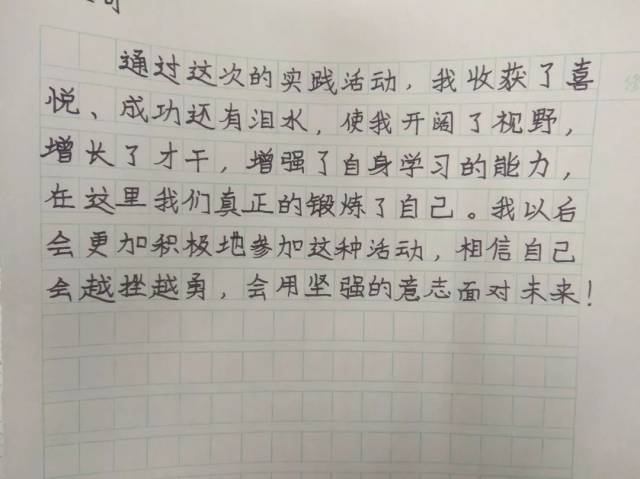 通过这次的实践活动，我收获了喜
悦、成功还有泪水，使我开阔了视野，
增长了才干，增强了自身学习的能力，
在这里我们真正的锻炼了自己。我以后
会更加积极地参加这种活动，相信自己
会越挫越勇，会用坚强的意志面对未来！